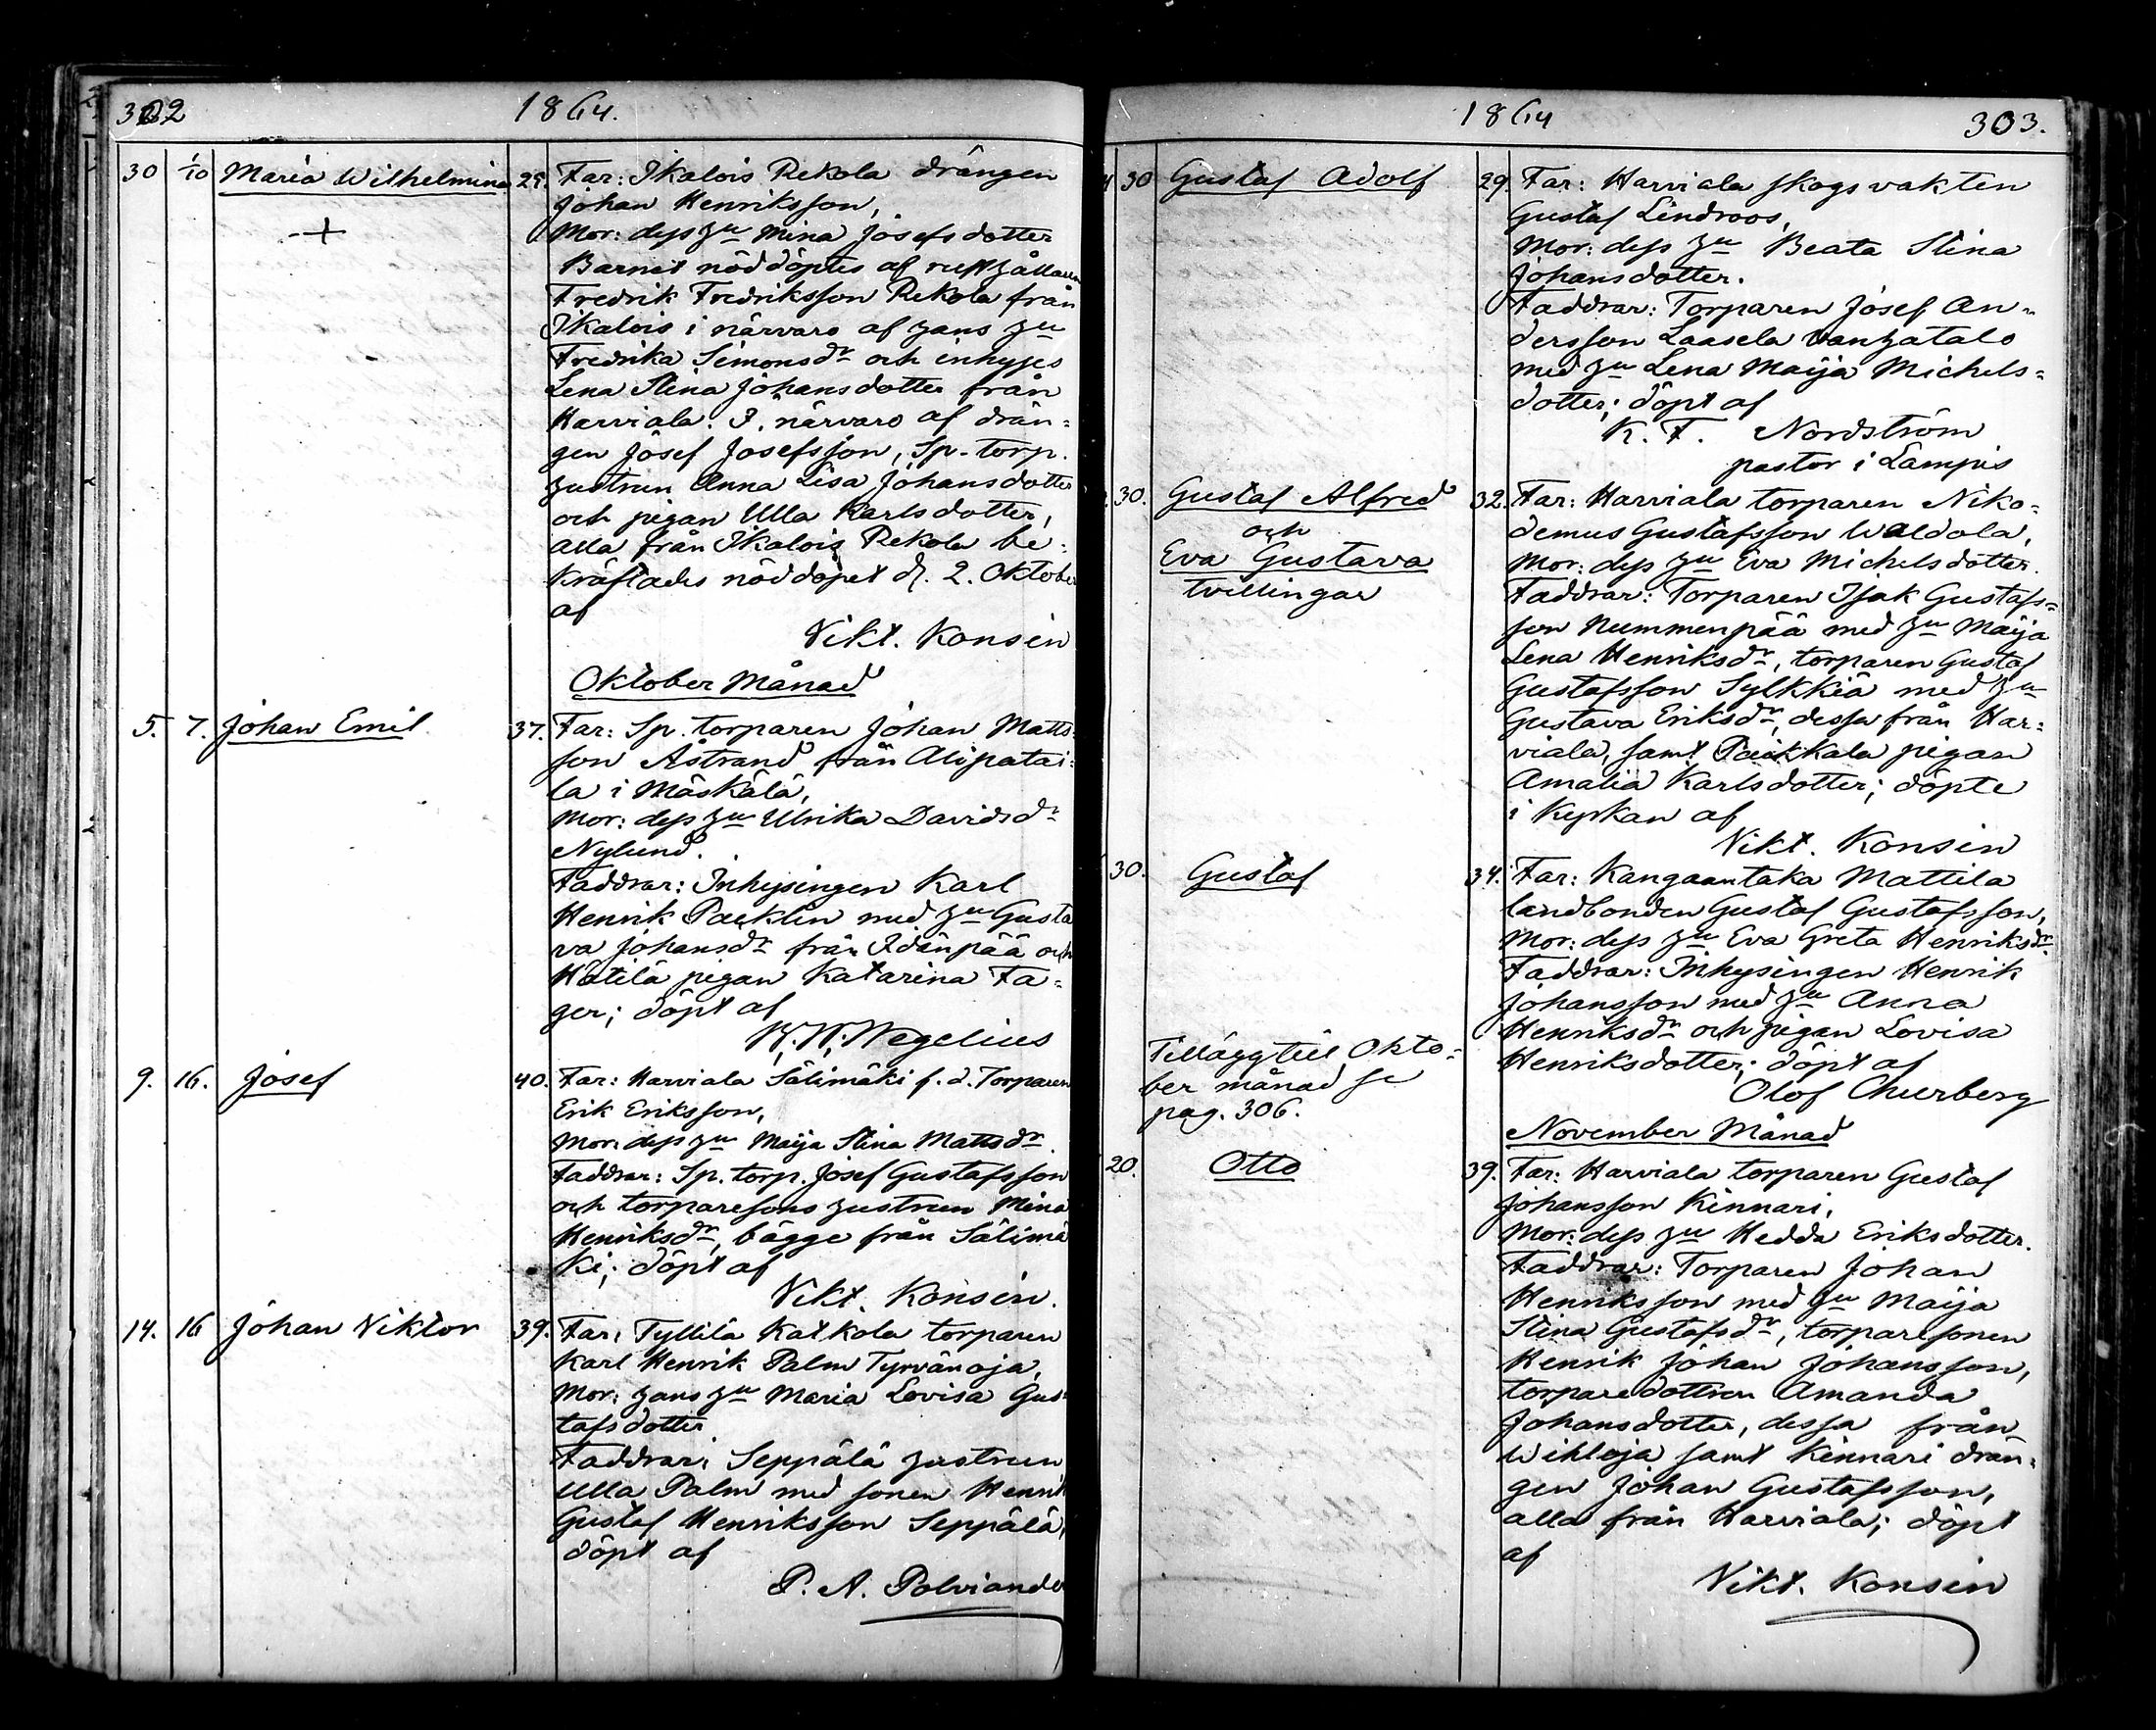 302 1864.
30 1/10 Maria Wilhelmina 29. Far: Ikalois Rekola drängen
Johan Henriksson,
+ Mor: dess hu Mina Josefsdotter
Barnet nöddöptes af rusthållaren
Fredrik Fredriksson Rekola från
Ikalois i närvaro af hans hu
Fredrika Simonsdr och inhyses
Lena Stina Johansdotter från
Harviala. I närvaro af drän=
gen Josef Josefsson, Sp. torp.
hustrun Anna Lisa Johansdotter
och pigan Ulla Karlsdotter,
alla från Ikalois Rekola be=
kräftades nöddopet d. 2. Oktober
af
Vikt. Konsin
Oktober Månad
5. 7. Johan Emil 37. Far: Sp. torparen Johan Matts=
son Åstrand från Alipatai=
la i Mäskälä,
Mor: dess hu Ulrika Davidsdr
Nylund.
Faddrar: Inhysingen Karl
Henrik Packlin med hu Gusta
va Johansdr från Idänpää och
Hätilä pigan Katarina Fa=
ger; döpt af
K. W. Wegelius
9. 16. Josef 40. Far: Harviala Sälimäki f. d. Torparen
Erik Eriksson,
Mor: dess hu Maija Stina Mattsdr.
Faddrar: Sp. torp. Josef Gustafsson
och torparesons hustrun Mina
Henriksdr, bägge från Sälimä
ki; döpt af
Vikt. Konsin.
14. 16 Johan Viktor 39. Far: Tyllilä Katkola torparen
Karl Henrik Palm Tyrvänoja,
Mor: hans hu Maria Lovisa Gus=
tafsdotter.
Faddrar: Seppälä hustrun
Ulla Palm med sonen Henrik
Gustaf Henriksson Seppälä,
döpt af
P. A. Polviander
1864 303.
30 Gustaf Adolf 29. Far: Harviala skogsvakten
Gustaf Lindroos,
Mor: dess hu Beata Stina
Johansdotter.
Faddrar: Torparen Josef An=
dersson Laasela Vanhatalo
med hu Lena Maija Michels=
dotter; döpt af
K. F. Nordström
pastor i Lampis
30. Gustaf Alfred 32. Far: Harviala torparen Niko=
och demus Gustafsson Waldola,
Eva Gustava Mor: dess hu Eva Michelsdotter.
tvillingar Faddrar: Torparen Isak Gustafs=
son Nummenpää med hu Maija
Lena Henriksdr, torparen Gustaf
Gustafsson Sylkkiä med hu
Gustava Eriksdr, dessa från Har=
viala, samt Paikkala pigan
Amalia Karlsdotter; döpte
i kyrkan af
Vikt. Konsin
30. Gustaf 34. Far: Kangaantaka Mattila
landbonden Gustaf Gustafsson,
Mor: dess hu Eva Greta Henriksdr.
Faddrar: Inhysingen Henrik
Johansson med hu Anna
Henriksdr och pigan Lovisa
Henriksdotter; döpt af
Olof Churberg
Tillägg till Okto=
ber månad se
pag. 306.
November Månad
20. Otto 39. Far: Harviala torparen Gustaf
Johansson Kinnari,
Mor: dess hu Hedda Eriksdotter.
Faddrar: Torparen Johan
Henriksson med hu Maija
Stina Gustafsdr, torparesonen
Henrik Johan Johansson,
torparedottren Amanda
Johansdotter, dessa från
Wihloja samt Kinnari drän=
gen Johan Gustafsson,
alla från Harviala; döpt
af
Vikt. Konsin